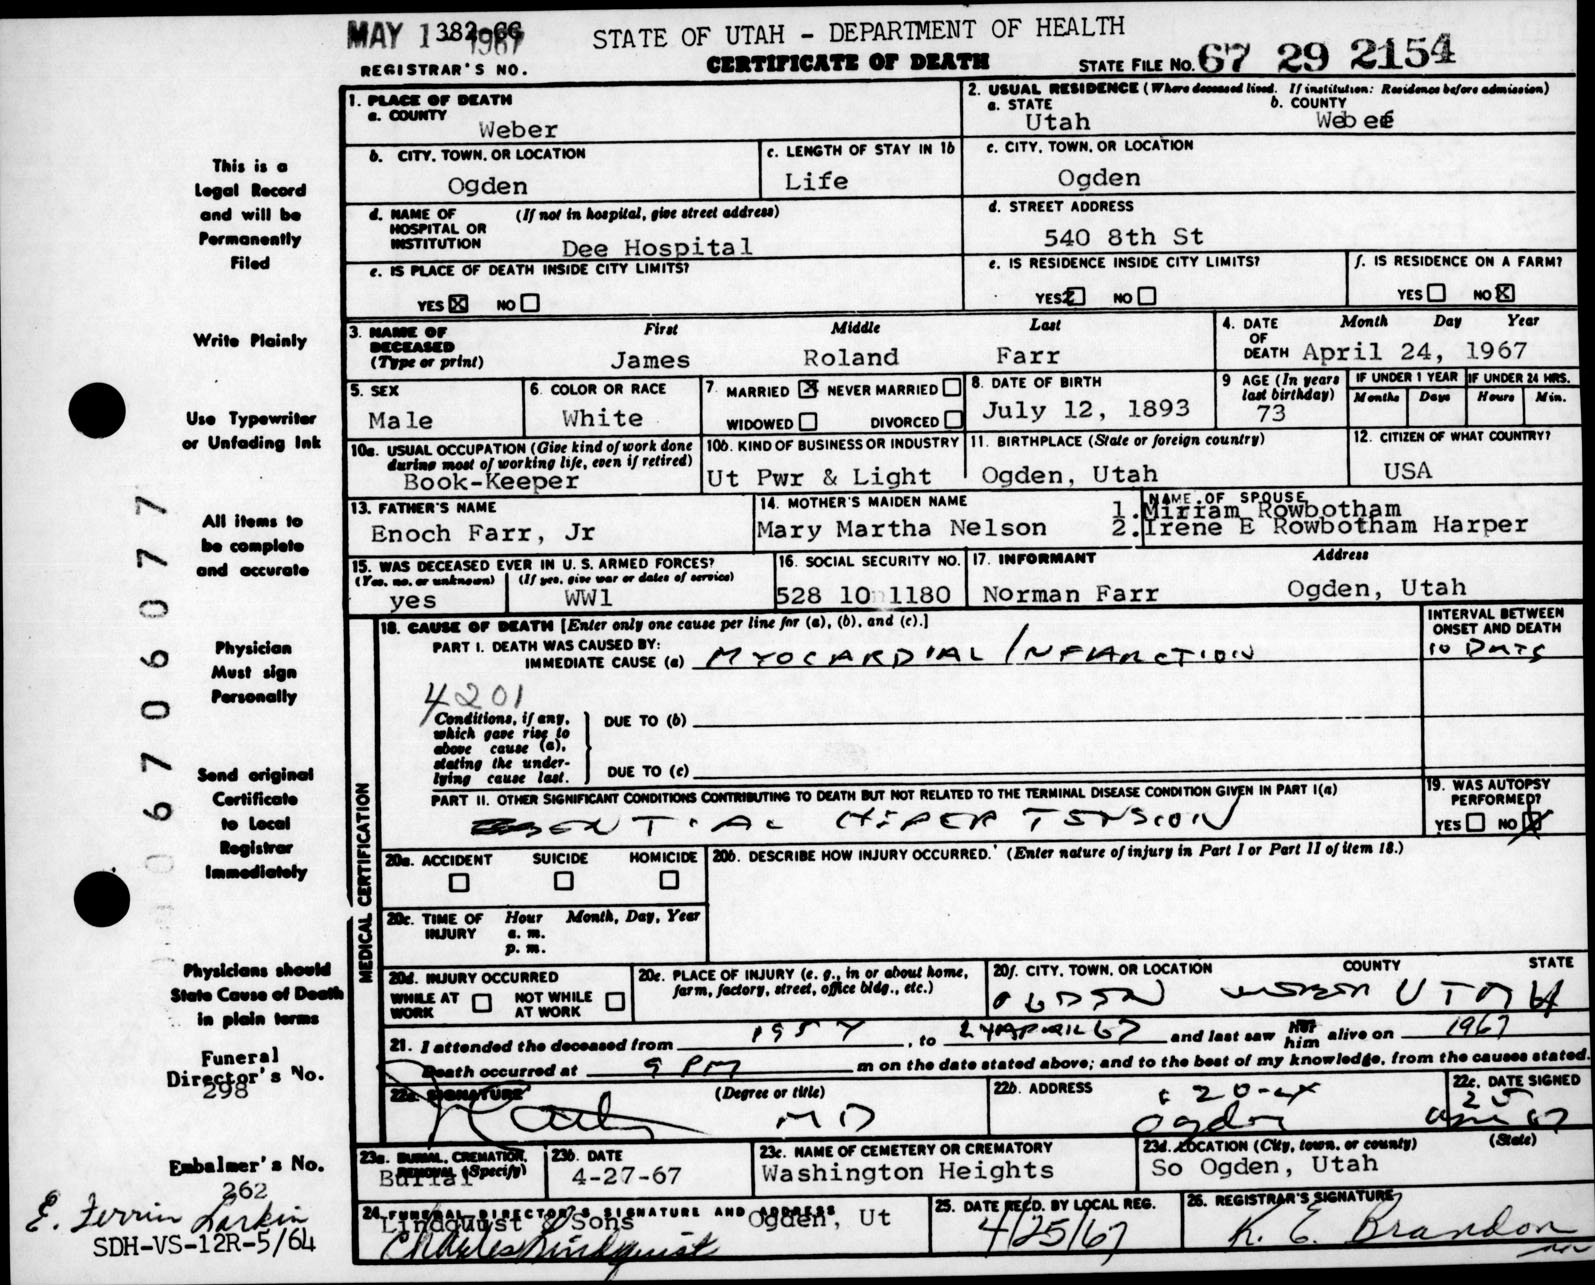 MAY 1 1967 382-66
STATE OF UTAH - DEPARTMENT OF HEALTH
REGISTRAR'S NO.
CERTIFICATE OF DEATH
STATE FILE NO. 67 29 2154
1. PLACE OF DEATH
a. COUNTY
Weber
2. USUAL RESIDENCE (Where deceased lived. If institution: Residence before admission)
a. STATE
Utah
b. COUNTY
Weber
b. CITY, TOWN, OR LOCATION
Ogden
c. LENGTH OF STAY IN 1b
Life
c. CITY, TOWN, OR LOCATION
Ogden
d. NAME OF HOSPITAL OR INSTITUTION (If not in hospital, give street address)
Dee Hospital
d. STREET ADDRESS
540 8th St
e. IS PLACE OF DEATH INSIDE CITY LIMITS?
YES NO
e. IS RESIDENCE INSIDE CITY LIMITS?
YES NO
f. IS RESIDENCE ON A FARM?
YES NO
3. NAME OF DECEASED (Type or print)
First Middle Last
James Roland Farr
4. DATE OF DEATH
Month Day Year
April 24, 1967
5. SEX
Male
6. COLOR OR RACE
White
7. MARRIED NEVER MARRIED
WIDOWED DIVORCED
8. DATE OF BIRTH
July 12, 1893
9 AGE (In years last birthday)
73
IF UNDER 1 YEAR
Months Days
IF UNDER 24 HRS.
Hours Min.
10a. USUAL OCCUPATION (Give kind of work done during most of working life, even if retired)
Book-Keeper
10b. KIND OF BUSINESS OR INDUSTRY
Ut Pwr & Light
11. BIRTHPLACE (State or foreign country)
Ogden, Utah
12. CITIZEN OF WHAT COUNTRY?
USA
13. FATHER'S NAME
Enoch Farr, Jr
14. MOTHER'S MAIDEN NAME
Mary Martha Nelson
NAME OF SPOUSE
1. Miriam Rowbotham
2. Irene E Rowbotham Harper
15. WAS DECEASED EVER IN U. S. ARMED FORCES?
(Yes, no, or unknown) (If yes, give war or dates of service)
yes WW1
16. SOCIAL SECURITY NO.
528 10 1180
17. INFORMANT Address
Norman Farr Ogden, Utah
18. CAUSE OF DEATH [Enter only one cause per line for (a), (b), and (c).]
INTERVAL BETWEEN ONSET AND DEATH
PART I. DEATH WAS CAUSED BY:
IMMEDIATE CAUSE (a) MYOCARDIAL INFARCTION
10 DAYS
4201
Conditions, if any, which gave rise to above cause (a), stating the underlying cause last.
DUE TO (b)
DUE TO (c)
PART II. OTHER SIGNIFICANT CONDITIONS CONTRIBUTING TO DEATH BUT NOT RELATED TO THE TERMINAL DISEASE CONDITION GIVEN IN PART I(a)
ESSENTIAL HYPERTENSION
19. WAS AUTOPSY PERFORMED?
YES NO
MEDICAL CERTIFICATION
20a. ACCIDENT SUICIDE HOMICIDE
20b. DESCRIBE HOW INJURY OCCURRED. (Enter nature of injury in Part I or Part II of item 18.)
20c. TIME OF INJURY
Hour Month, Day, Year
a. m.
p. m.
20d. INJURY OCCURRED
WHILE AT WORK NOT WHILE AT WORK
20e. PLACE OF INJURY (e. g., in or about home, farm, factory, street, office bldg., etc.)
20f. CITY, TOWN, OR LOCATION COUNTY STATE
OGDEN WEBER UTAH
21. I attended the deceased from 1957, to 24 APRIL 67 and last saw him alive on 1967
Death occurred at 9 PM m on the date stated above; and to the best of my knowledge, from the causes stated.
22a. SIGNATURE (Degree or title)
MD
22b. ADDRESS
Ogden
22c. DATE SIGNED
25 April 67
23a. BURIAL, CREMATION, REMOVAL (Specify)
Burial
23b. DATE
4-27-67
23c. NAME OF CEMETERY OR CREMATORY
Washington Heights
23d. LOCATION (City, town, or county) (State)
So Ogden, Utah
24. FUNERAL DIRECTOR'S SIGNATURE AND ADDRESS
Lindquist & Sons Ogden, Ut
Charles Lindquist
25. DATE RECD. BY LOCAL REG.
4/25/67
26. REGISTRAR'S SIGNATURE
K. E. Brandon
This is a
Legal Record
and will be
Permanently
Filed
Write Plainly
Use Typewriter
or Unfading Ink
All items to
be complete
and accurate
Physician
Must sign
Personally
Send original
Certificate
to Local
Registrar
Immediately
Physicians should
State Cause of Death
in plain terms
Funeral
Director's No.
298
Embalmer's No.
262
E. Ferrin Larkin
SDH-VS-12R-5/64
0 6 7 0 6 0 7 7